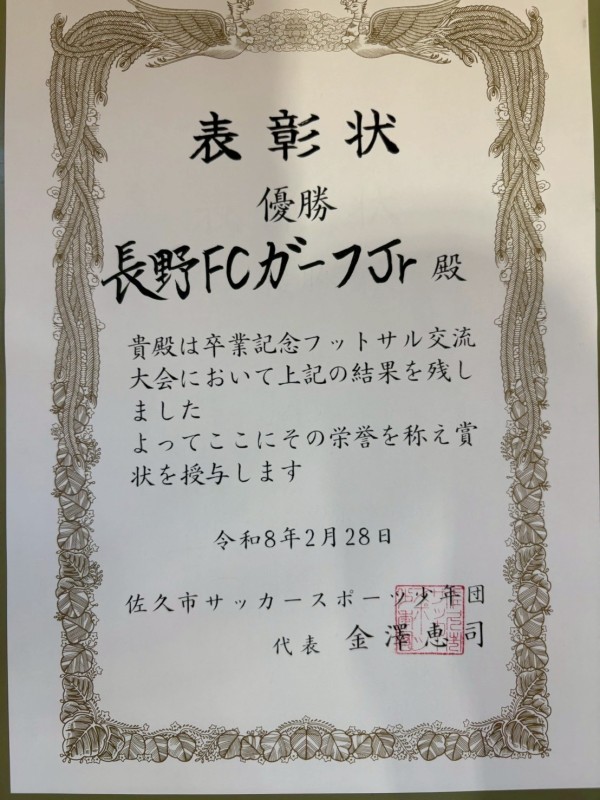 表彰状
優勝
長野FCガーフJr 殿
貴殿は卒業記念フットサル交流
大会において上記の結果を残し
ました
よってここにその栄誉を称え賞
状を授与します
令和8年2月28日
佐久市サッカースポーツ少年団
代表 金澤恵司